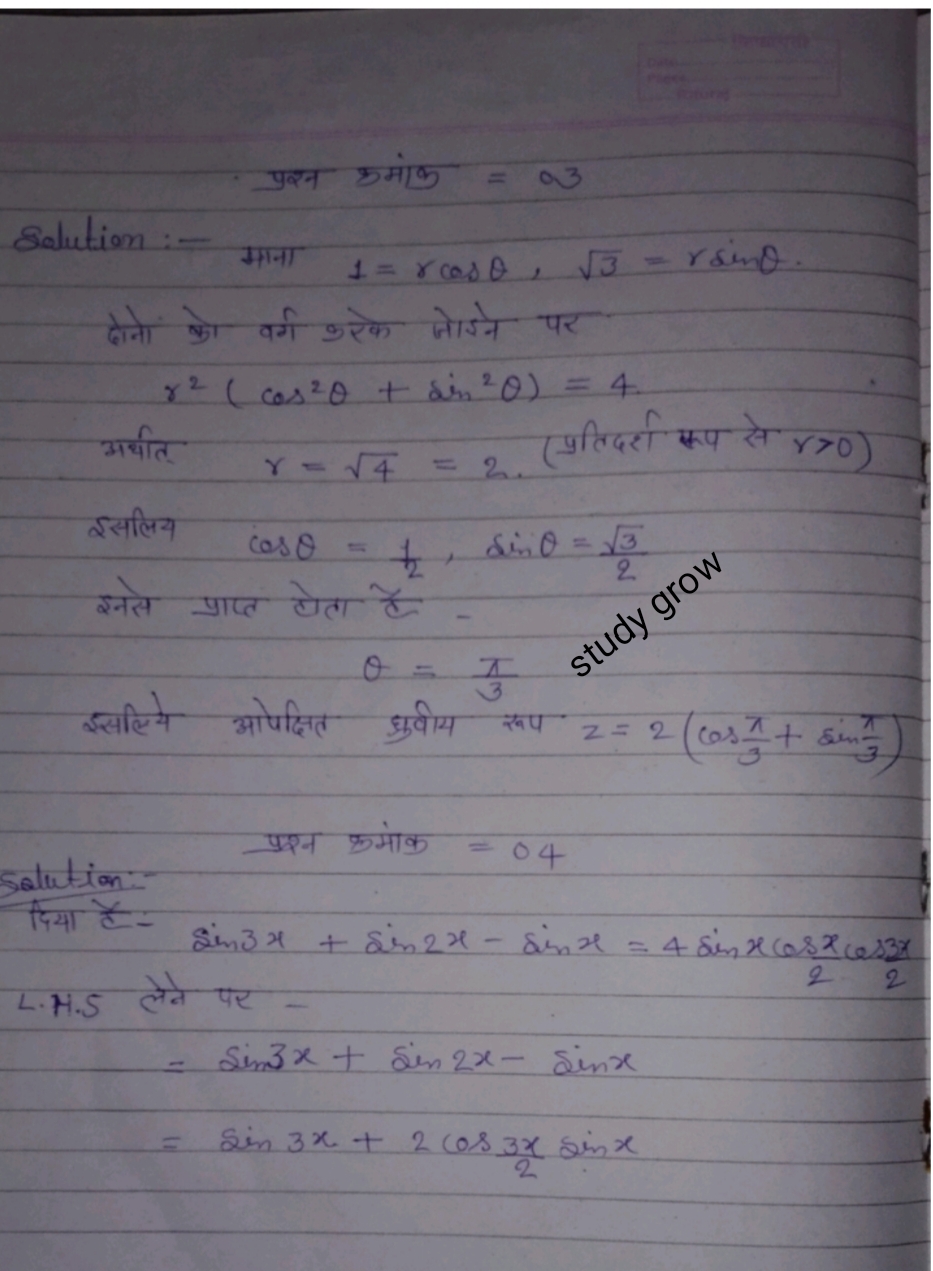 प्रश्न क्रमांक = 03
Solution :-
माना 1 = r cosθ , √3 = r sinθ.
दोनो को वर्ग करके जोडने पर
r² ( cos²θ + sin²θ) = 4.
अर्थात् r = √4 = 2. (प्रतिदर्श रूप से r>0)
इसलिय cosθ = 1/2 , sinθ = √3/2
इनसे प्राप्त होता है -
study grow
θ = π/3
इसलिये ओपक्षित ध्रुवीय रूप z = 2 (cos π/3 + sin π/3)
प्रश्न क्रमांक = 04
Solution:-
दिया है -
sin3x + sin2x - sinx = 4 sinx cos x/2 cos 3x/2
L.H.S लेने पर -
= sin3x + sin 2x - sinx
= sin 3x + 2 cos 3x/2 sin x